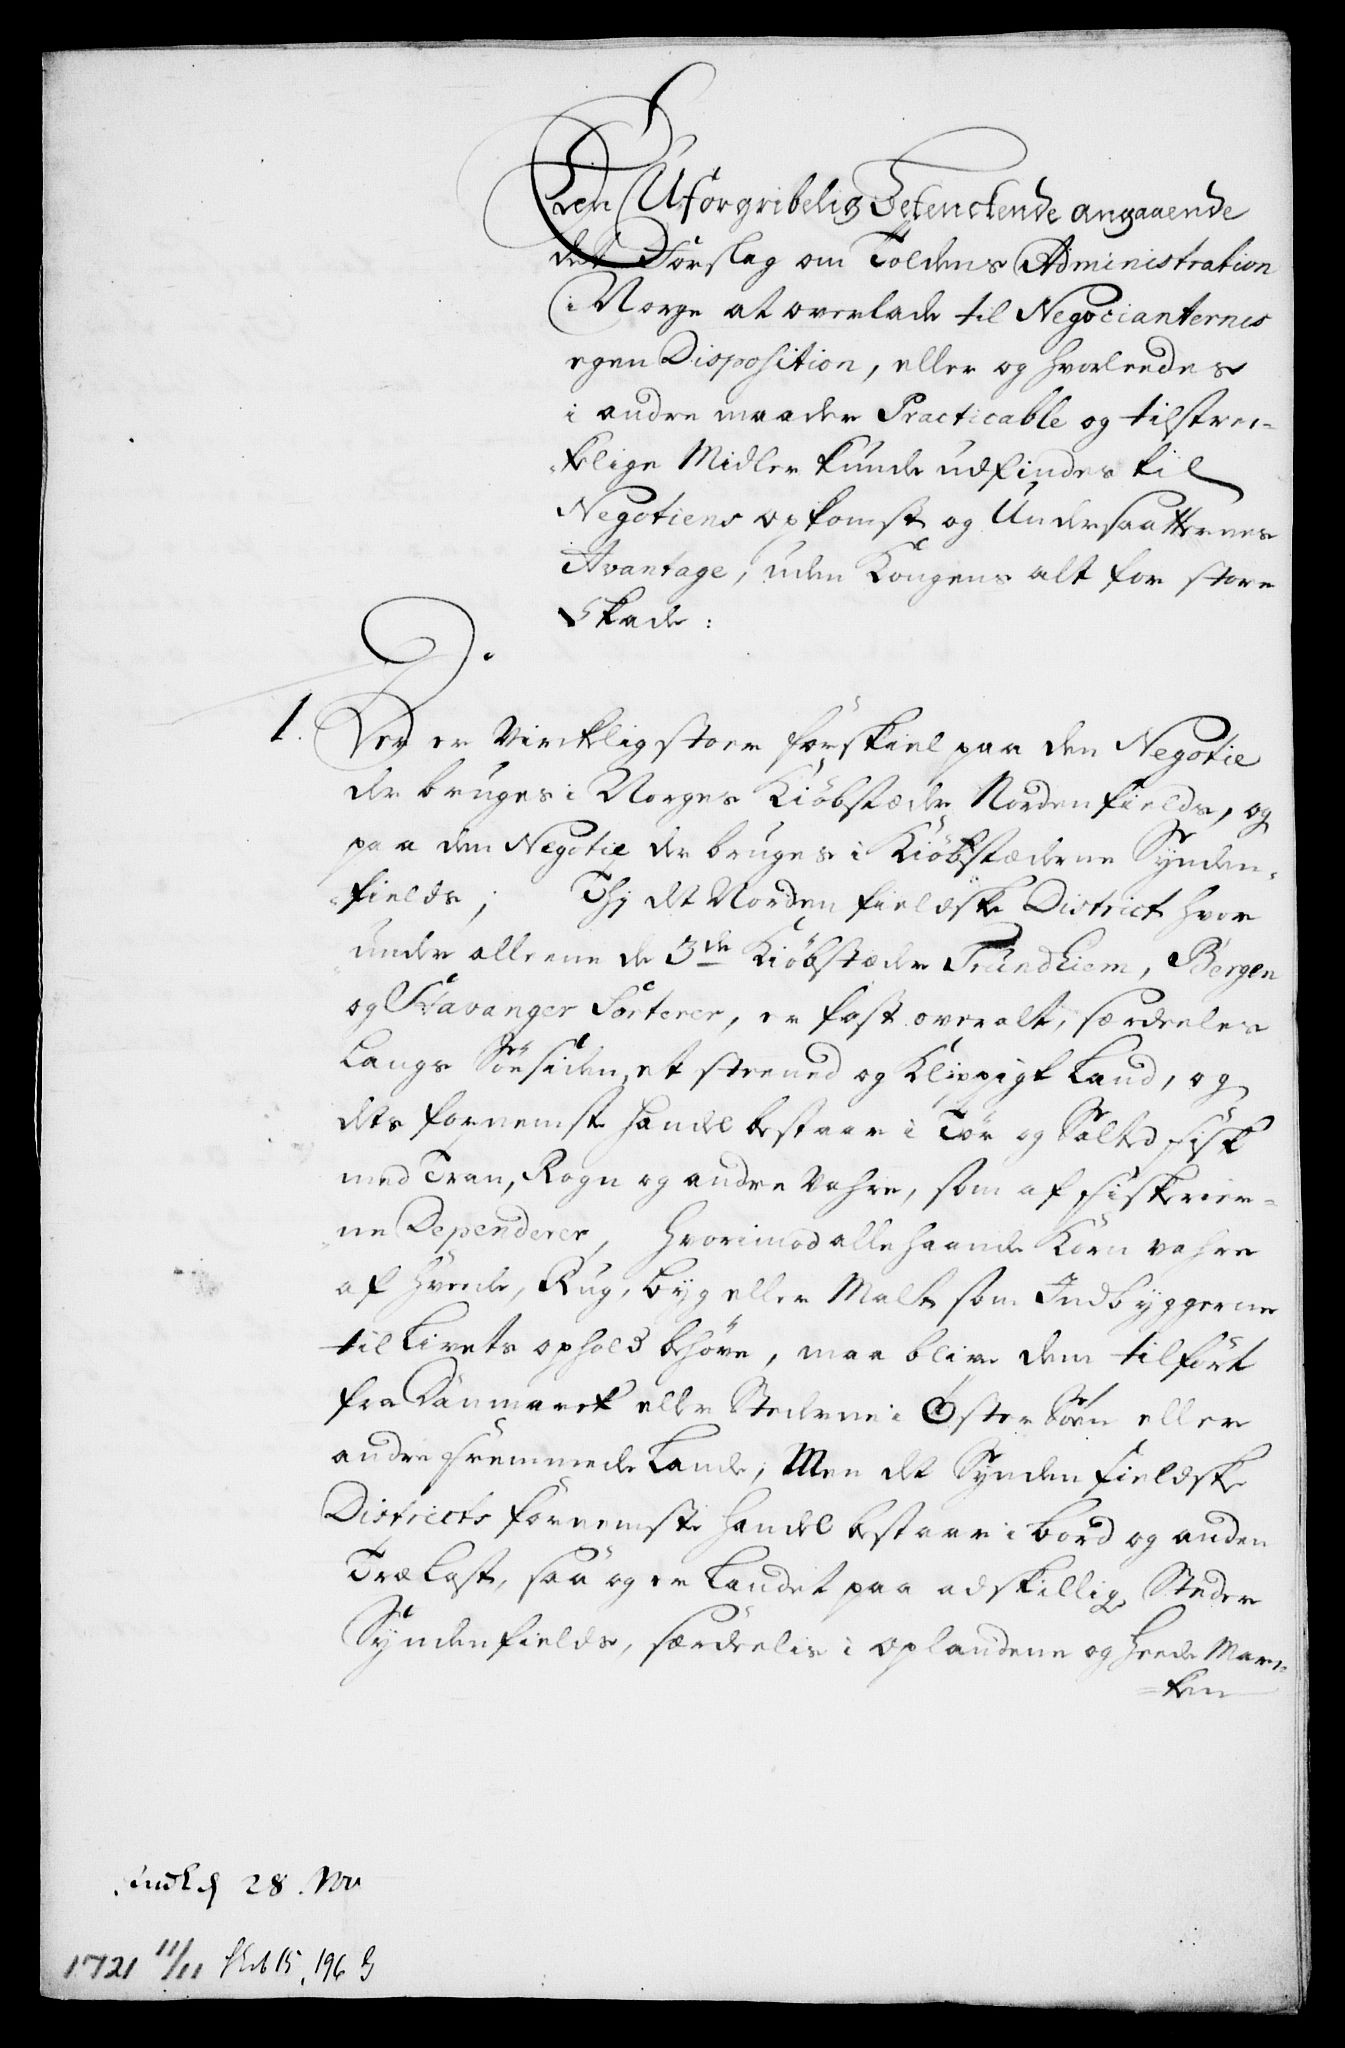 Een Uforgribelig Betenckende angaaende
det Forslag om Toldens Administration
i Norge at overlade til Negocianternes
egen Disposition, eller og hvorledes
i andre maader Practicable og tilstræ-
-klige Midler kunde udfindes til
Negotiens opkomst og Undersaatternes
Avantage, uden Kongens alt for store
Skade:
1. Der er Virkelig stoer forskiel paa den Negotie
der bruges i Norges Kiöbstæder Nordenfields, og
paa den Negotie der bruges i Kiöbstæderne Synden-
-fields; Thj det Nordenfieldske District hvor
under alleene de 3de Kiöbstæder Trundhiem, Bergen
og Stavanger Sorterer, er fast overalt, særdeeles
Langs Söesiden, et steened og Klippigt Land, og
dets fornemste Handel bestaar i Tör og Salted fisk
med Tran, Rogn og andre Vahre, som af fiskerier-
-ne Dependerer, Hvorimod alle haande Korn vahre
af Hvede, Rug, Byg eller Malt som Indbyggerne
til Livets ophold behöve, maa blive dem tilfört
fra Danmarck eller Stederne i Öster Söen eller
andre fremmede Lande; Men det Syndenfieldske
Districts fornemste Handel bestaar i bord og anden
Træ Last, saa og er Landet paa adskillig Steder
Syndenfields, særdeelis i Oplandene og Hede Mar-
-ken
28. Nov
1721 11/11 15, 196